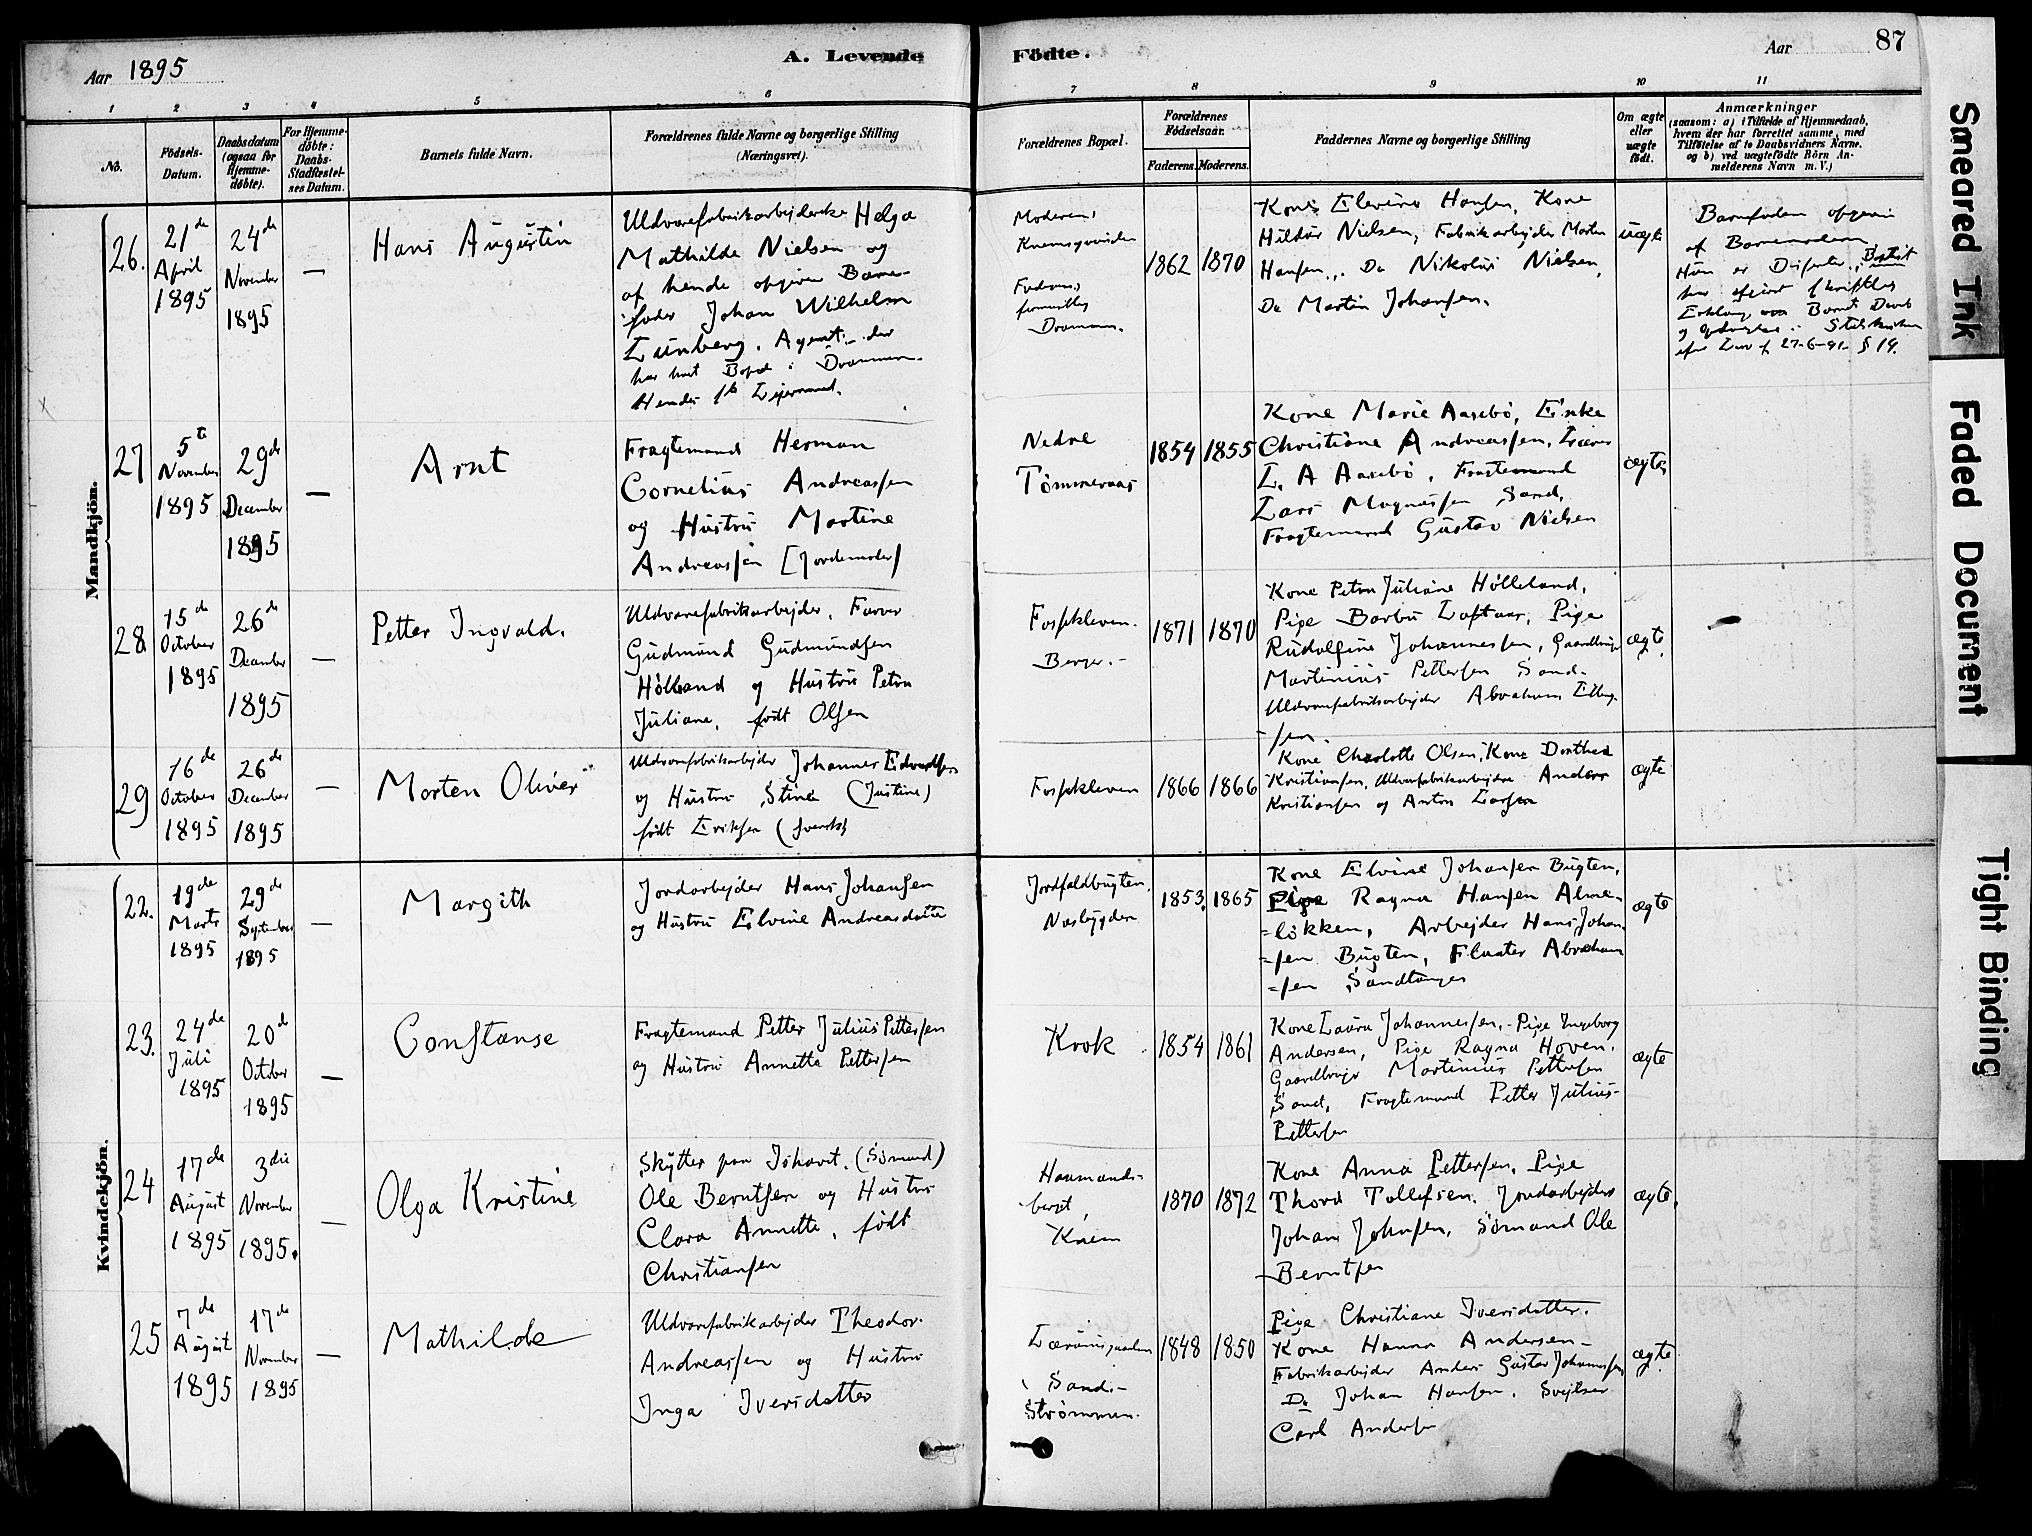 Aar 1895
A. Levende
Födte.
Aar
87
1 2 3 4 5 6 7 8 9 10 11
No.
Födsels-
Datum.
Daabsdatum
(ogsaa for
Hjemme-
døbte).
For Hjemme-
døbte:
Daabs-
Stadfæstel-
ses Datum.
Barnets fulde Navn.
Forældrenes fulde Navne og borgerlige Stilling
(Næringsvei).
Forældrenes Bopæl.
Forældrenes
Födselsaar.
Faderens. Moderens.
Faddernes Navne og borgerlige Stilling
Om ægte
eller
uægte
födt.
Anmærkninger
(saasom: a) i Tilfælde af Hjemmedaab,
hvem der har forrettet samme, med
Tilføielse af to Daabsvidners Navne.
og b) ved uægtefödte Börn An-
melderens Navn m. V.)
Mandkjön.
26.
21de
April
1895
24de
November
1895
—
Hans Augustin
Uldvarefabrikarbejderske Helga
Mathilde Nielsen og
af hende opgiven Barne-
fader Johan Wilhelm
Lünberg, Agent, der
har havt Bopæl i Drammen.
Hendes 1ste Lejermaal.
Moderens
Knemsgrinden
Faderens
Drammen.
1862 1870
Kone Elevine Hansen, Kone
Hildur Nielsen, Fabrikarbejder Morten
Hansen, Do Nikolai Nielsen,
Do Martin Johansen.
uægte
Barnefaderen opgiven
af Barnemoderen
Hun er Dissenter, Baptist
har afgivet skriftlig
Erklæring om Barnets Daab
og Opdragelse i Statskirken
efter Lov af 27-6-91 § 19.
27
5te
November
1895
29de
December
1895
—
Arnt
Fragtemand Herman
Cornelius Andreassen
og Hustru Martine
Andreassen [Jordemoder]
Nedre
Tømmeraas
1854 1855
Kone Marie Aasebö, Enke
Christiane Andreassen, Lærer
L. A Aasebö, Fragtemand
Lars Magnussen Sand,
Fragtemand Gustav Nielsen
ægte
28
15de
October
1895
26de
December
1895
—
Petter Ingvald.
Uldvarefabrikarbejder, Farver
Gudmund Gudmundsen
Hölland og Hustru Petra
Juliane, født Olsen
Fossekleven.
Berger.-
1871 1870
Kone Petra Juliane Hölleland,
Pige Barbu Loftaas, Pige
Rudolfine Johannessen, Gaardbruger
Martinius Pettersen Sand-
Uldvarefabrikarbejder Abraham Elling-
-sen
ægte.
29
16de
October
1895
26de
December
1895
—
Morten Oliver
Uldvarefabrikarbejder Johannes Edvardsen
og Hustru Stina (Justine)
født Eriksen (svensk)
Fossekleven
1866 1866
Kone Charlotte Olsen, Kone Dorthea
Kristiansen, Uldvarefabrikarbejdere Anders
Kristiansen og Anton Larsen
ægte
Kvindekjön.
22.
19de
Marts
1895
29de
September
1895
—
Margith
Jordarbejder Hans Johansen
og Hustru Elvine Andreasdatter
Jordfaldbugten.
Næsbygden
1853. 1865
Kone Elvine Johansen Bugten,
Pige Ragna Hansen Alme-
=lökken, Arbejder Hans Johan-
=sen Bugten, Fløater Abraham
=sen Sandtangen
ægte
23.
24de
Juli
1895
20de
October
1895
—
Constanse
Fragtemand Petter Julius Pettersen
og Hustru Annette Pettersen
Krok
1854 1861
Kone Laura Johannessen,- Pige Ingeborg
Andersen, Pige Ragna Hoven,
Gaardbruger Martinius Pettersen
Sand, Fragtemand Petter Julius-
Pettersen
ægte
24
17de
August
1895
3die
November
1895.
—
Olga Kristine
Skytter paa Ishavet. (Sömand)
Ole Berntsen og Hustru
Clara Annette, født
Christiansen
Havmands-
berget,
Knem
1870 1872
Kone Anna Pettersen, Pige
Thora Tollefsen. Jordarbejder
Johan Johnsen, Sömand Ole
Berntsen
ægte.
25
7de
August
1895
17de
November
1895
—
Mathilde
Uldvarefabrikarbejder Theodor-
Andreassen og Hustru
Inga Iversdatter
Sand.-
Strömmen.
1848 1850
Pige Christiane Iversdatter.
Kone Hanna Andersen-
Fabrikarbejder Anders Gustav Johannessen
Do Johan Hansen, Svejtser
Carl Andersen
ægte.
Smeared Ink
Faded Document
Tight Binding